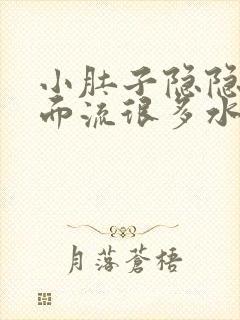 小肚子隐隐
而流很多水
月落苍梧